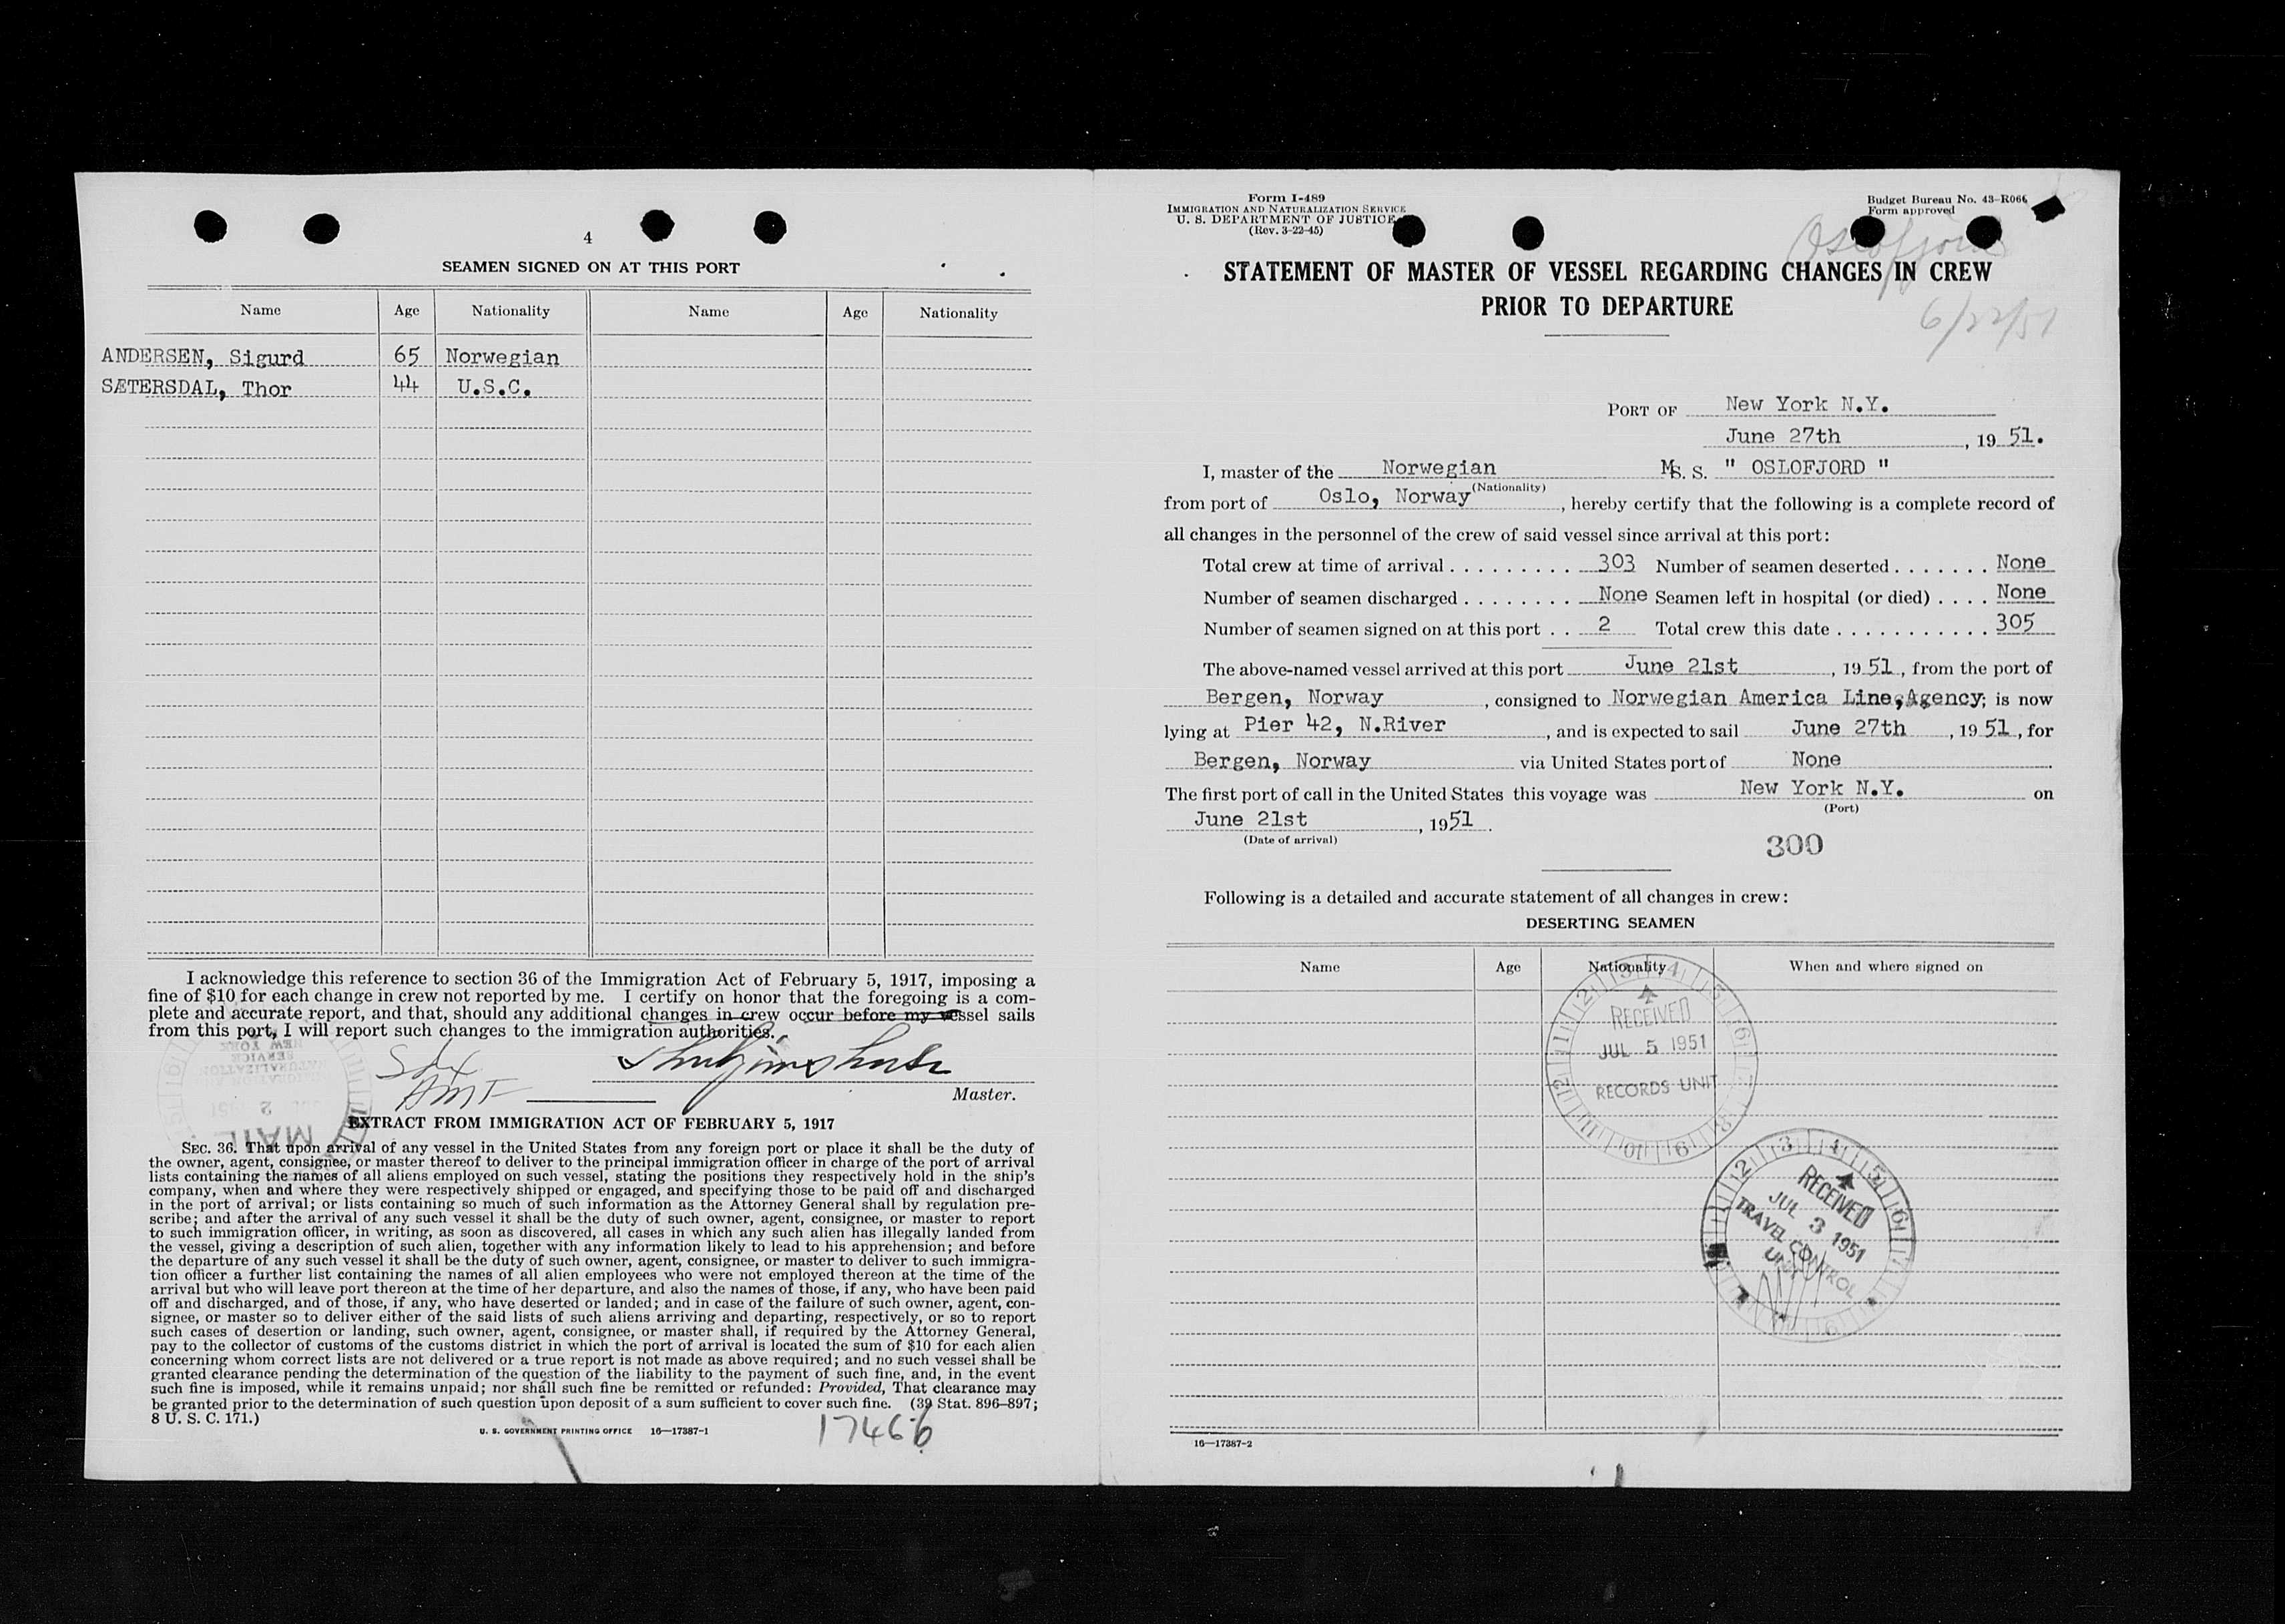 4
SEAMEN SIGNED ON AT THIS PORT
Name Age Nationality Name Age Nationality
ANDERSEN, Sigurd 65 Norwegian
SÆTERSDAL, Thor 44 U.S.C.
I acknowledge this reference to section 36 of the Immigration Act of February 5, 1917, imposing a
fine of $10 for each change in crew not reported by me. I certify on honor that the foregoing is a com-
plete and accurate report, and that, should any additional changes in crew occur before my vessel sails
from this port, I will report such changes to the immigration authorities.
Master.
EXTRACT FROM IMMIGRATION ACT OF FEBRUARY 5, 1917
SEC. 36. That upon arrival of any vessel in the United States from any foreign port or place it shall be the duty of
the owner, agent, consignee, or master thereof to deliver to the principal immigration officer in charge of the port of arrival
lists containing the names of all aliens employed on such vessel, stating the positions they respectively hold in the ship's
company, when and where they were respectively shipped or engaged, and specifying those to be paid off and discharged
in the port of arrival; or lists containing so much of such information as the Attorney General shall by regulation pre-
scribe; and after the arrival of any such vessel it shall be the duty of such owner, agent, consignee, or master to report
to such immigration officer, in writing, as soon as discovered, all cases in which any such alien has illegally landed from
the vessel, giving a description of such alien, together with any information likely to lead to his apprehension; and before
the departure of any such vessel it shall be the duty of such owner, agent, consignee, or master to deliver to such immigra-
tion officer a further list containing the names of all alien employees who were not employed thereon at the time of the
arrival but who will leave port thereon at the time of her departure, and also the names of those, if any, who have been paid
off and discharged, and of those, if any, who have deserted or landed; and in case of the failure of such owner, agent, con-
signee, or master so to deliver either of the said lists of such aliens arriving and departing, respectively, or so to report
such cases of desertion or landing, such owner, agent, consignee, or master shall, if required by the Attorney General,
pay to the collector of customs of the customs district in which the port of arrival is located the sum of $10 for each alien
concerning whom correct lists are not delivered or a true report is not made as above required; and no such vessel shall be
granted clearance pending the determination of the question of the liability to the payment of such fine, and, in the event
such fine is imposed, while it remains unpaid; nor shall such fine be remitted or refunded: Provided, That clearance may
be granted prior to the determination of such question upon deposit of a sum sufficient to cover such fine. (39 Stat. 896–897;
8 U. S. C. 171.)
U. S. GOVERNMENT PRINTING OFFICE 16—17387-1
17466
Form I-489
IMMIGRATION AND NATURALIZATION SERVICE
U. S. DEPARTMENT OF JUSTICE
(Rev. 3-22-45)
Budget Bureau No. 43-R066
Form approved
Oslofjord
STATEMENT OF MASTER OF VESSEL REGARDING CHANGES IN CREW
PRIOR TO DEPARTURE
6/22/51
PORT OF New York N.Y.
June 27th, 19 51.
I, master of the Norwegian M.S. S. " OSLOFJORD "
(Nationality)
from port of Oslo, Norway, hereby certify that the following is a complete record of
all changes in the personnel of the crew of said vessel since arrival at this port:
Total crew at time of arrival . . . . . . . . . 303 Number of seamen deserted . . . . . . . None
Number of seamen discharged . . . . . . . . None Seamen left in hospital (or died) . . . . None
Number of seamen signed on at this port . . 2 Total crew this date . . . . . . . . . . . 305
The above-named vessel arrived at this port June 21st, 19 51, from the port of
Bergen, Norway, consigned to Norwegian America Line, Agency; is now
lying at Pier 42, N.River, and is expected to sail June 27th, 19 51, for
Bergen, Norway via United States port of None.
The first port of call in the United States this voyage was New York N.Y. on
(Port)
June 21st, 19 51.
(Date of arrival)
300
Following is a detailed and accurate statement of all changes in crew:
DESERTING SEAMEN
Name Age Nationality When and where signed on
RECEIVED
JUL 5 1951
RECORDS UNIT
RECEIVED
JUL 3 1951
TRAVEL CONTROL
UNIT
16—17387-2